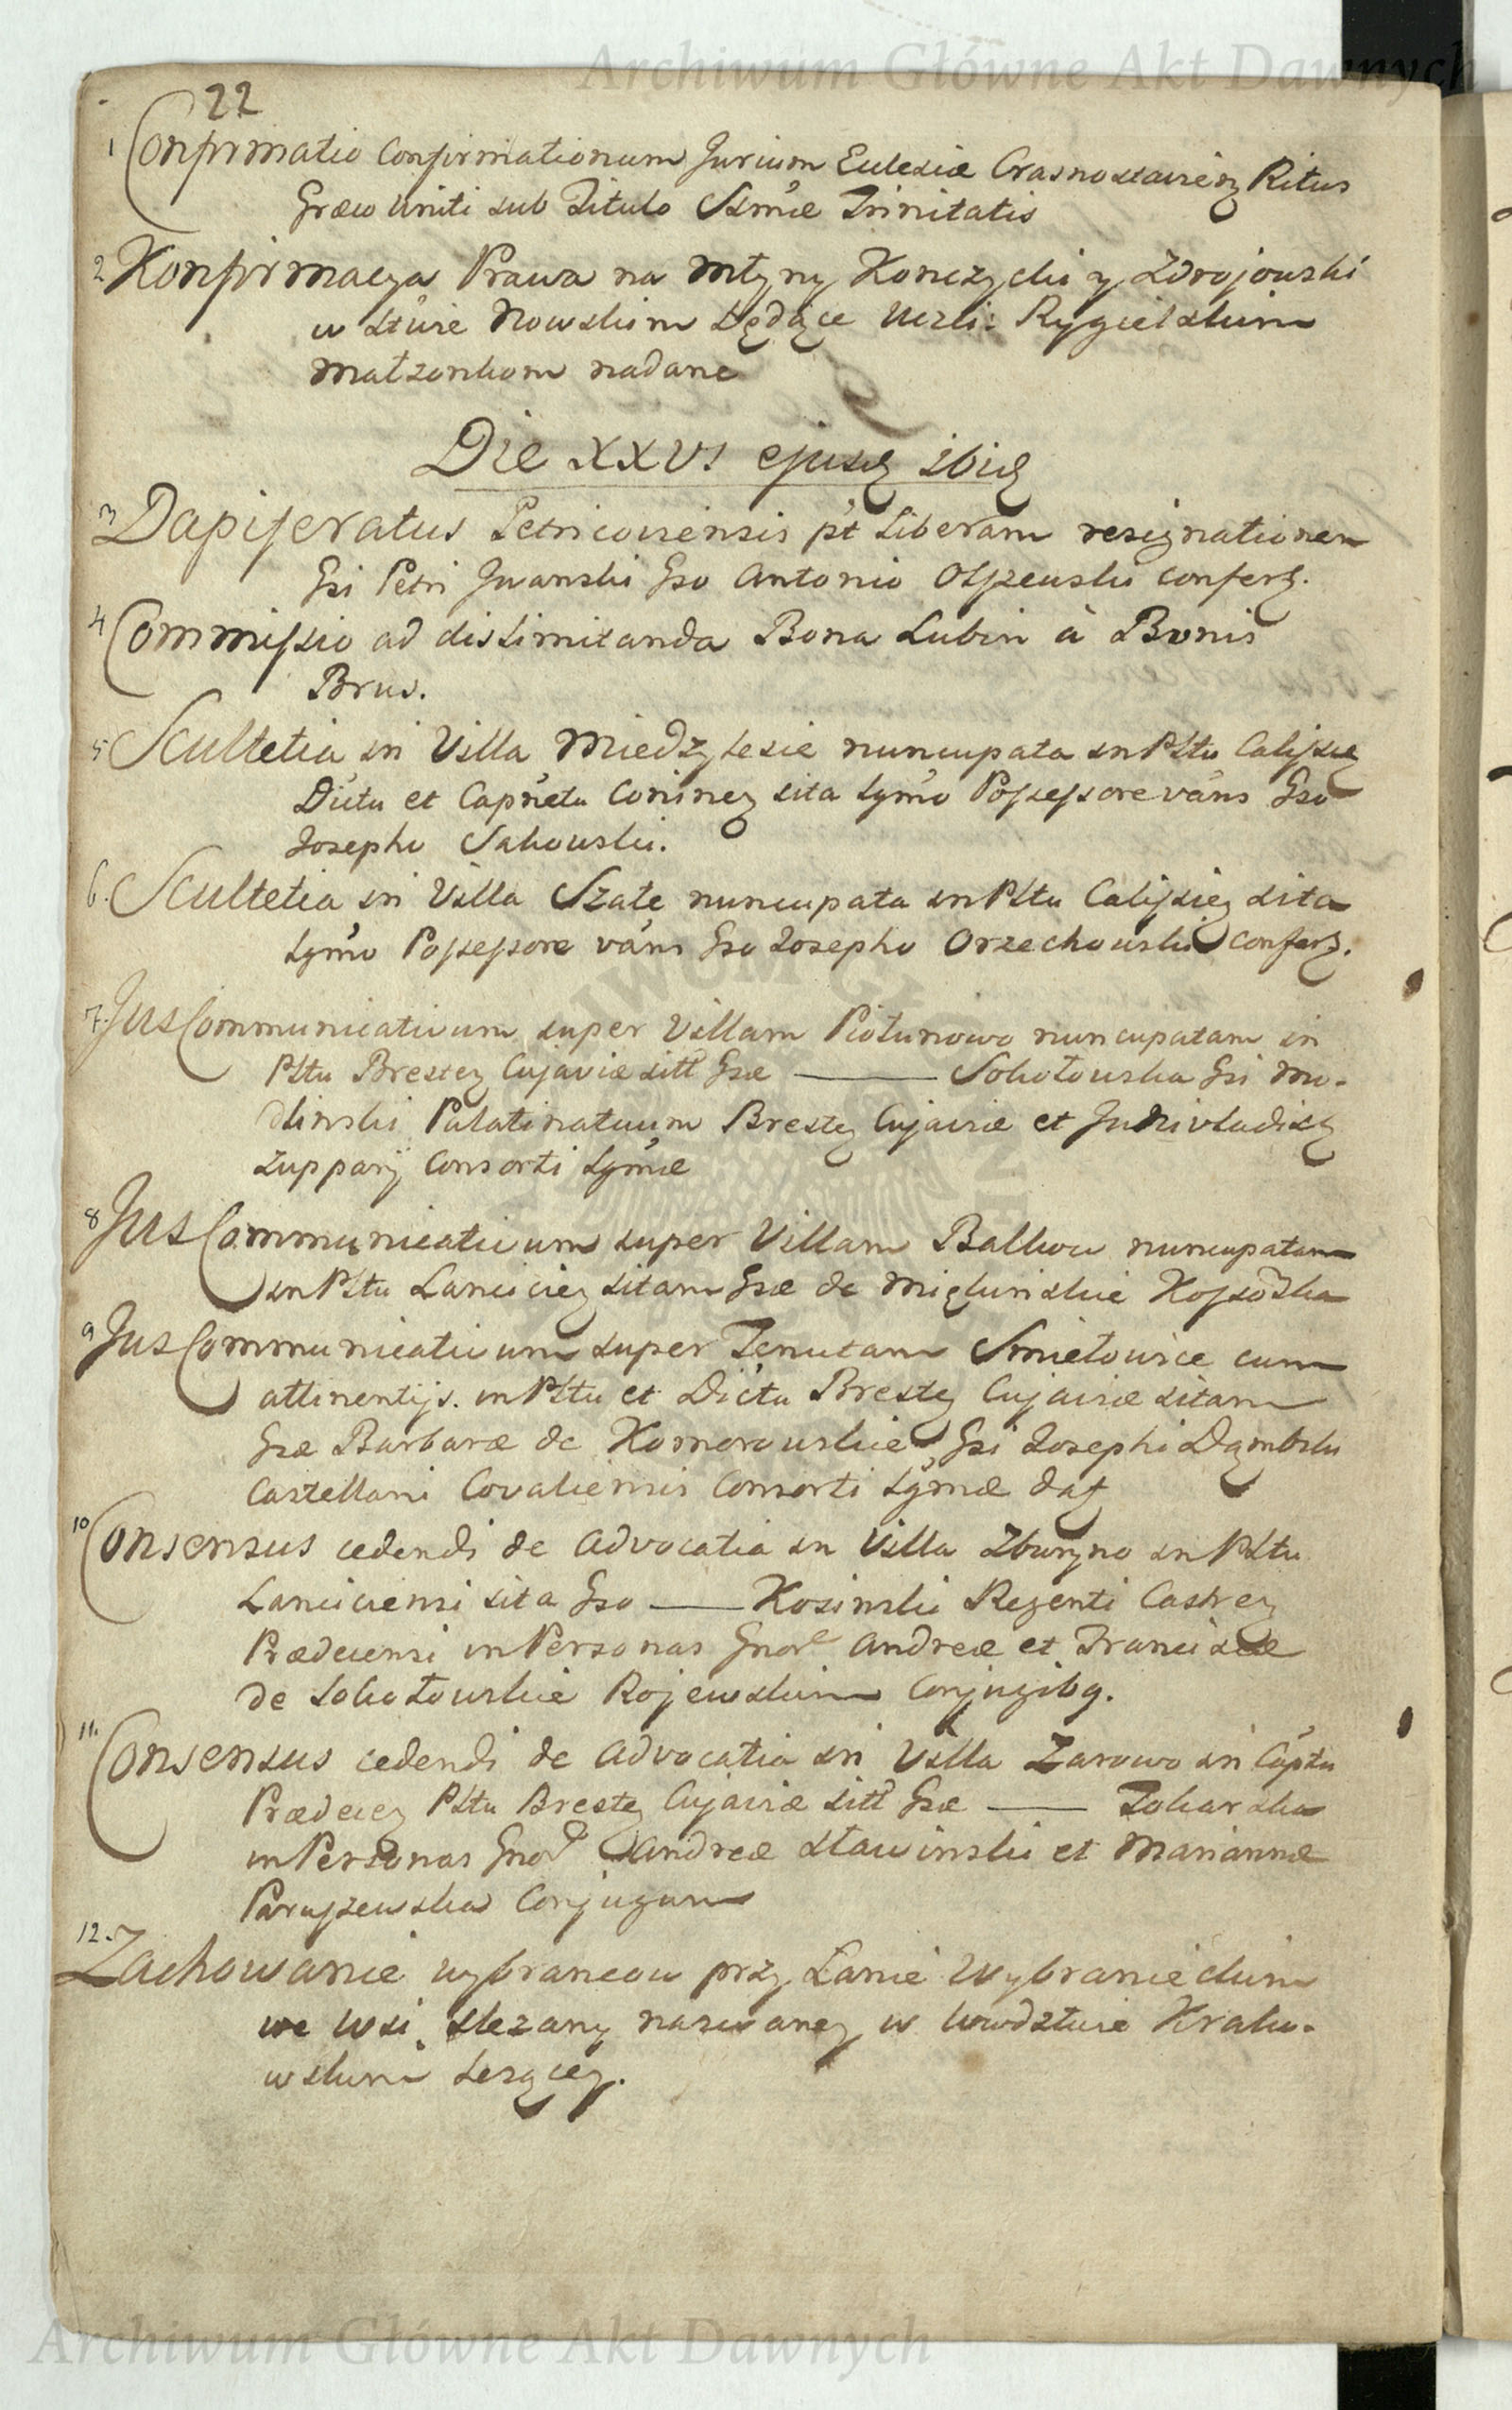 Archiwum Główne Akt Dawnych
22
1 Confirmatio Confirmationum Jurium Eclesiæ Crasnostavien Ritus
Græco Uniti sub Titulo SSmæ Trinitatis
2 Konfirmacya Prawa na Młyny Konczycki y Zdrojowski
w Stwie Nowskim będące Uczci: Rygielskim
Małzonkom nadane
Die XXVI ejusd ibid
3 Dapiferatus Petricoviensis pt Liberam resignationem
Gsi Petri Iwanski Gso Antonio Olszewski confert.
4 Commissio ad dislimitanda Bona Lubin à Bonis
Brus.
5 Scultetia in Villa Miedzylesie nuncupata in Pltu Calissie
Dictu et Capnetu Coninen sita Lgmo Possessore vans Gso
Josepho Sakowski.
6. Scultetia in Villa Szałe nuncupata in Pltu Calissien sita
Lgmo Possessore vans Gso Josepho Orzechowski confert.
7. Jus Communicativum super Villam Piotunowo nuncupatam in
Pltu Bresten Cujaviæ sitt Gsæ ——— Sokołowska Gsi Mo-
dlinski Palatinatuum Bresten Cujaviæ et Junivladisl
Zupparij Consorti Lgmæ
8 Jus Communicativum super Villam Balkow nuncupatam
in Pltu Lancicien sitam Gsæ de Mięlunskie Kossodzka
9 Jus Communicativum super Tenutam Smiełowice cum
attinentijs. in Pltu et Dictu Bresten Cujaviæ sitam
Gsæ Barbaræ de Komorowskie Gsi Josephi Dąmbski
Castellani Covaliensis Consorti Lgmæ dat
10 Consensus cedendi de Advocatia in Villa Zbuyno in Pltu
Lanciciensi sita Gso —— Kosinski Regenti Castren
Prædecensi in Personas Gnor Andreæ et Franciscæ
de Sokołowskie Rojewskim Conjugibq.
11. Consensus cedendi de Advocatia in Villa Zarowo in Cаptu
Prædecen Pltu Bresten Cujaviæ sitt Gsæ —— Tokarska
in Personas Gnor Andreæ Sławinski et Mariannæ
Paruszewska Conjugum
12. Zachowanie wybrancow przy Łanie Wybranieckim
we Wsi Slezany nazwaney w Wwdztwie Krako-
wskim Lezącey.
Archiwum Główne Akt Dawnych